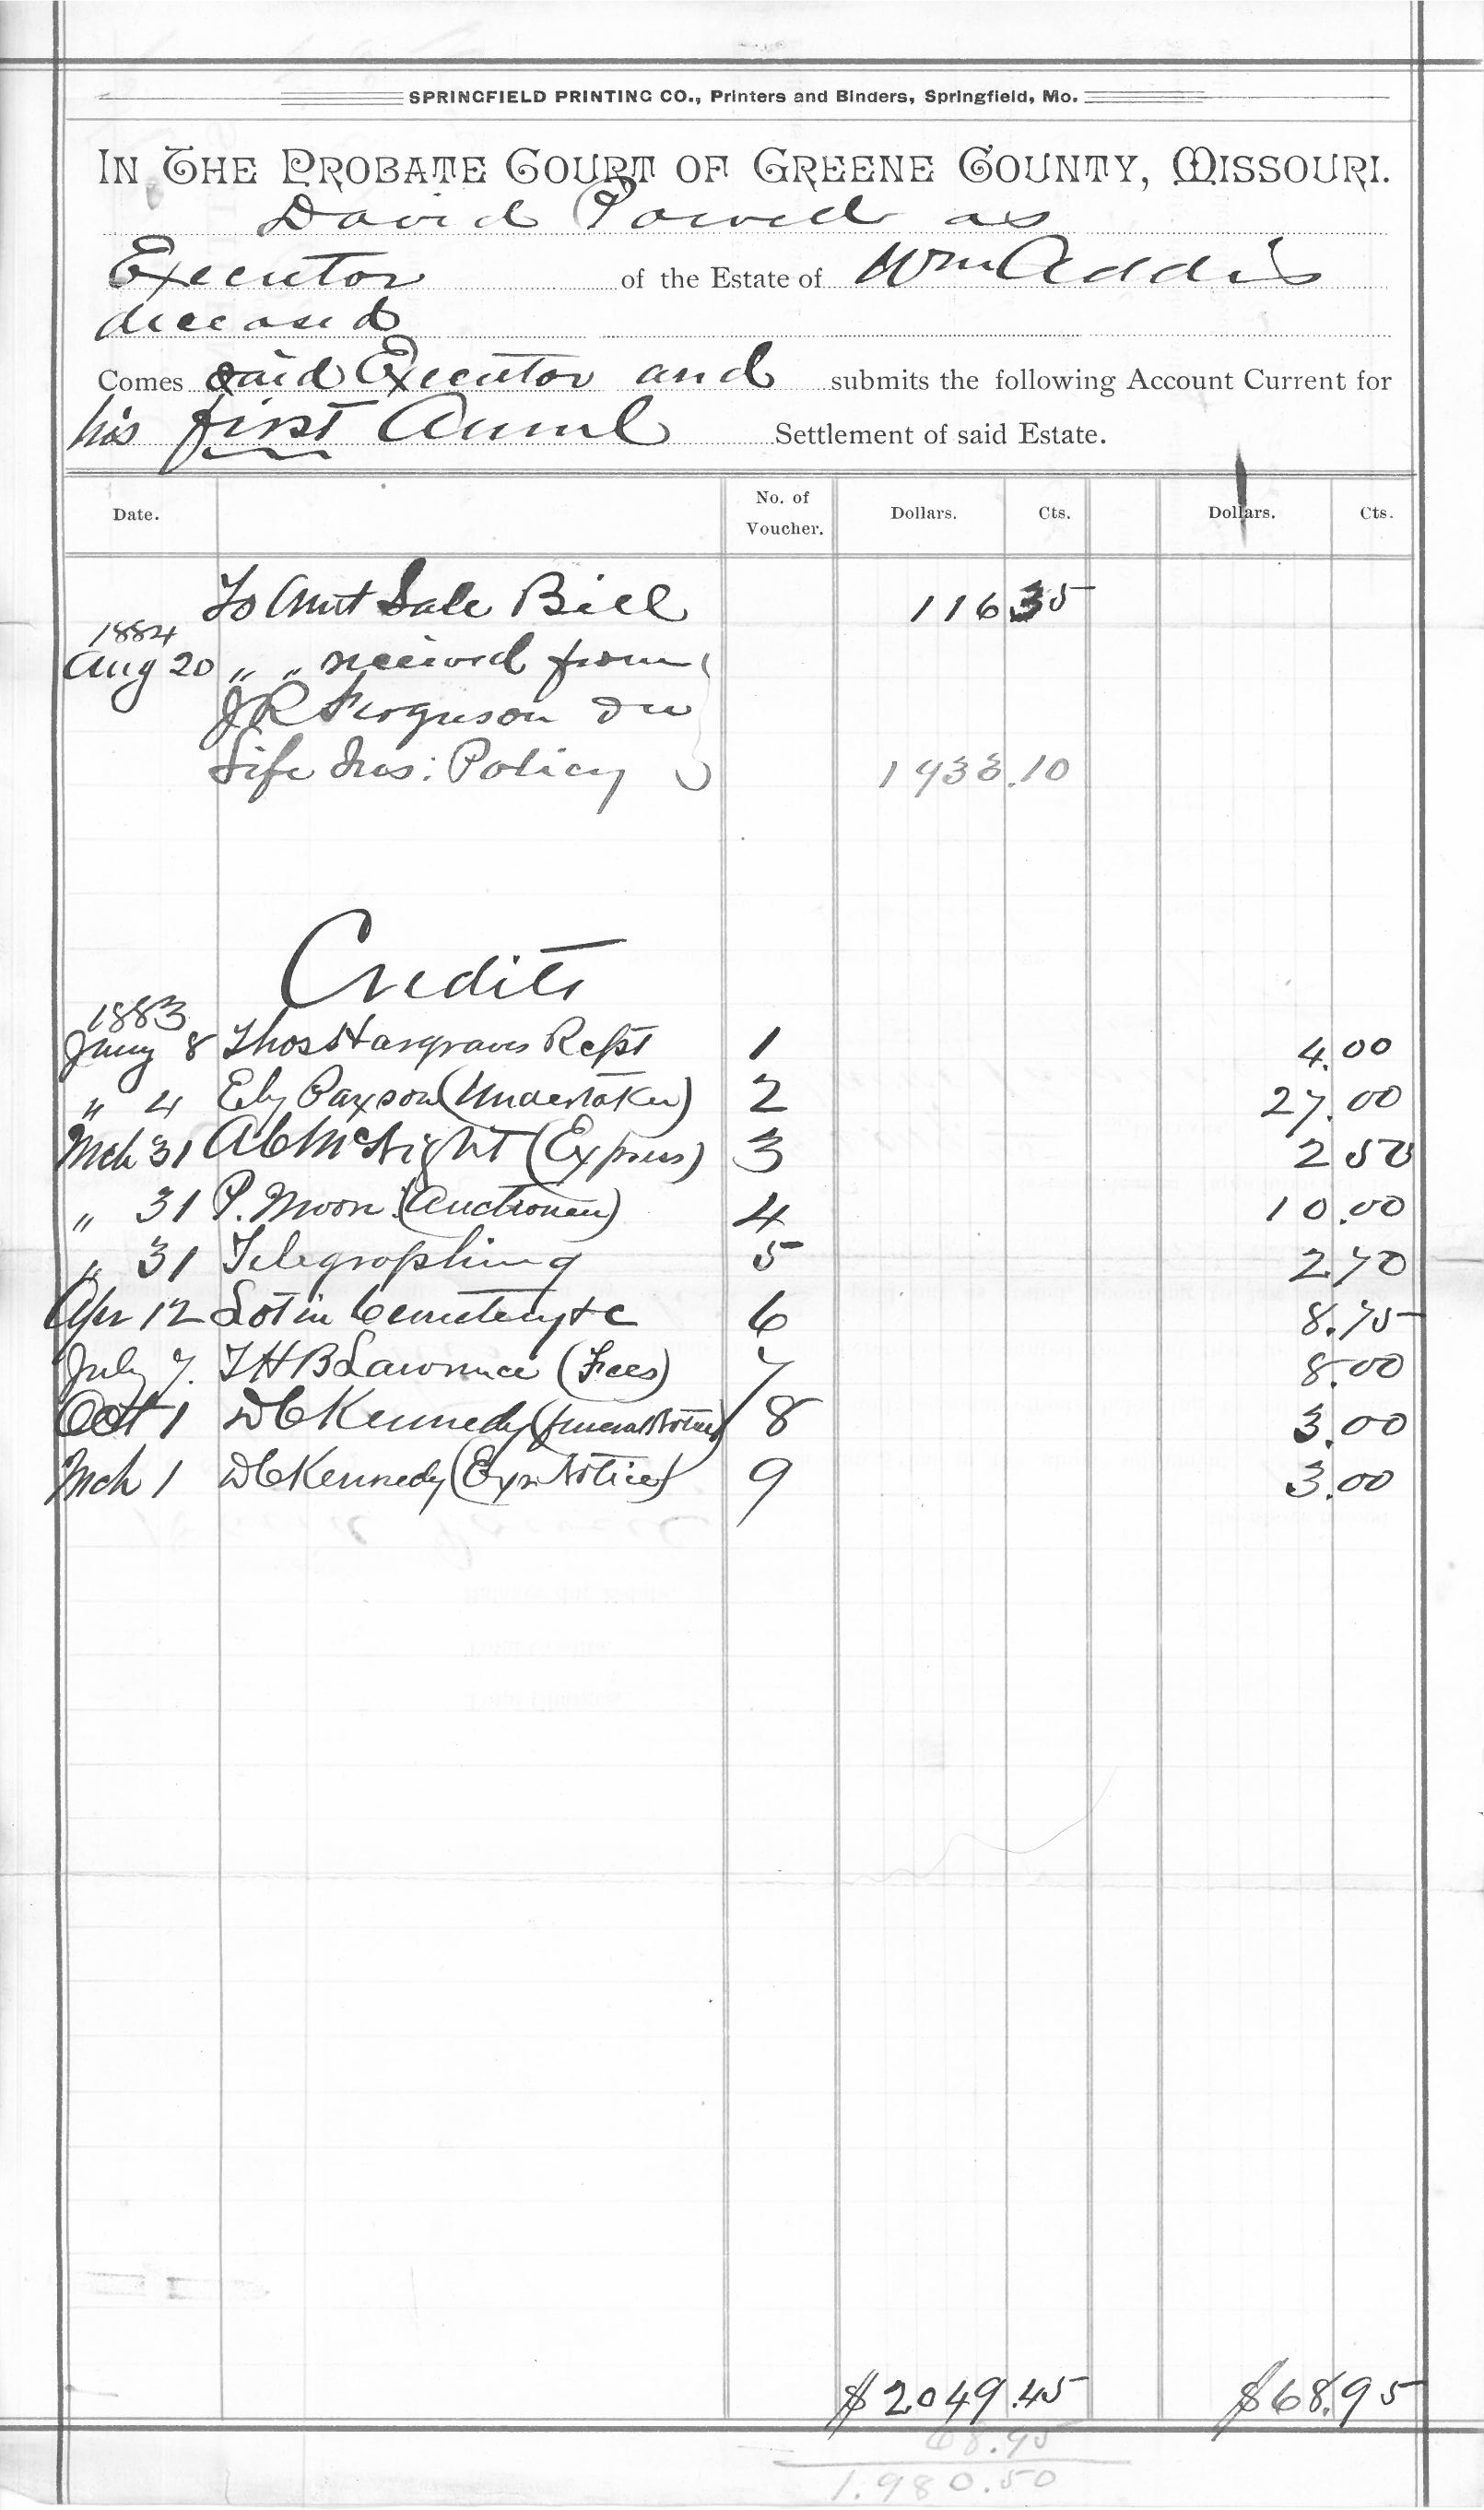 SPRINGFIELD PRINTING CO., Printers and Binders, Springfield, Mo.
IN THE PROBATE COURT OF GREENE COUNTY, MISSOURI.
David Powell as
Executor of the Estate of Wm Addis
deceased
Comes said Executor and submits the following Account Current for
his first Annul Settlement of said Estate.
Date. No. of Voucher. Dollars. Cts. Dollars. Cts.
To Amt Sale Bill 116 35
1884
Aug 20 " " received from
J R Ferguson on
Life Ins: Policy 1933.10
Credits
1883
Jany 8 Thos Hargraves Rcpt 1 4.00
" 4 Ely Paxson (Undertaker) 2 27.00
Mch 31 (Express) 3 2 50
" 31 P. Moon (Auctioneer) 4 10.00
" 31 Telegraphing 5 2.70
Apr 12 Lot in Cemetery &c 6 8.75
July 7. T H B Lawrence (Fees) 7 8.00
Oct 1 D C Kennedy (funeral Notice) 8 3.00
Mch 1 D C Kennedy (Exr Notice) 9 3.00
$2049.45 $68.95
68.95
1.980.50